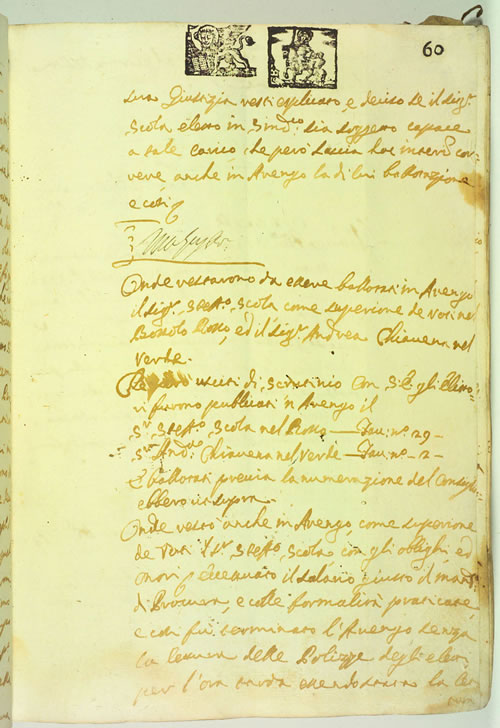 60
sura Giustizia resti esplicato, e deciso se il sig.r
Scola eletto in Sind.co sia soggetto capace
a tale carico, che però faccia
anche in Avengo la di lui ballotazione
e così
Onde restarono da essere ballotati in Avengo
il sig.r Stef.o Scola come superiore de voti nel
Bossolo Rosso, ed il sig.r Andrea Chiavena nel
Verde.
usciti di scrutinio con gli Eletto
ri furono publicati 'n Avengo il
S.r Stef.o Scola nel Rosso — Fau: n.o 29 —
S.r And.a Chiavena nel Verde — Fau: n.o 2 —
E ballotati previa la numerazione del Consiglio
ebbero ut supra.
Onde restò anche in Avengo, come superiore
de Voti il S.r Stef.o Scola con gli oblighi, ed
onori, il salario giusto il
di Procura, e colle formalità praticate,
e così fu terminato l'Avengo senza
la lettura delle Polizze degli eletti
per l'ora tarda essendo la let